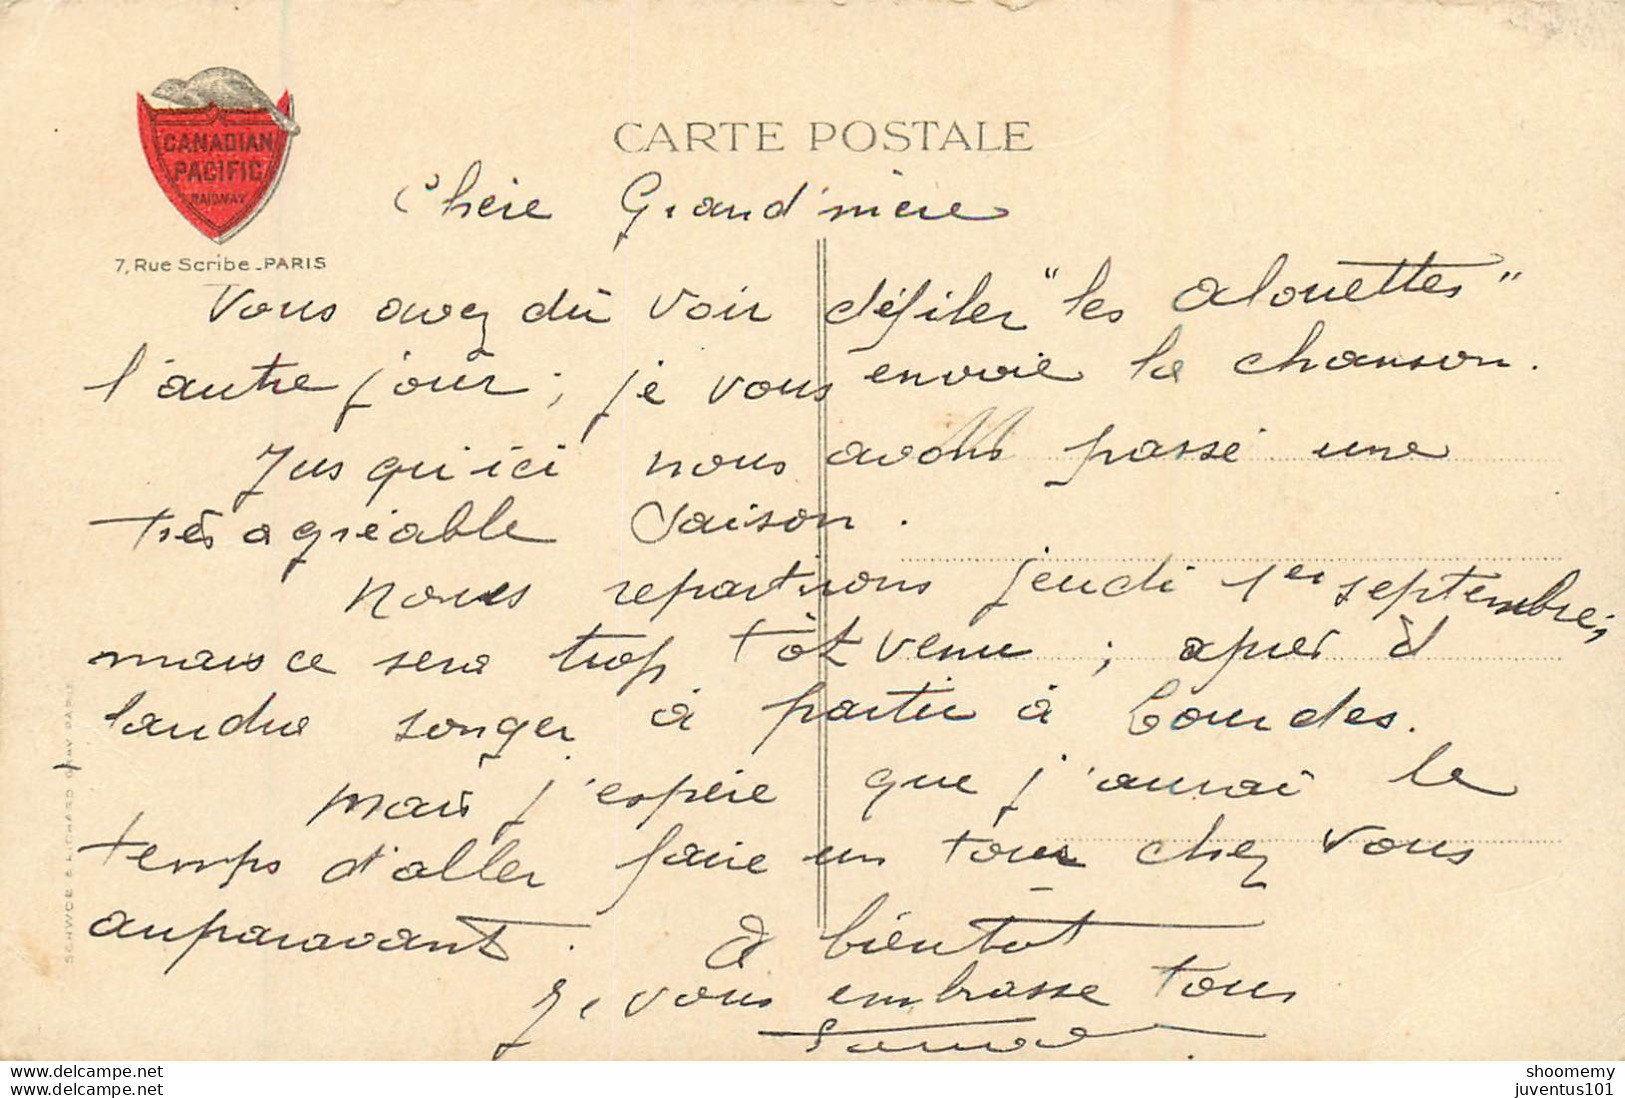 CANADIAN
PACIFIC
RAILWAY
7, Rue Scribe _ PARIS
CARTE POSTALE
Chère Grand'mère
Vous avez dû voir défiler "les alouettes"
l'autre jour ; je vous envoie la chanson.
Jusqu'ici nous avons passé une
très agréable saison.
Nous repartirons jeudi 1er septembre,
mais ce sera trop tôt venu ; après il
faudra songer à partir à Lourdes.
Mais j'espère que j'aurai le
temps d'aller faire un tour chez vous
auparavant. A bientôt
Je vous embrasse tous
SCHWOB & LICHARD GRAV PARIS
shoomemy
juventus101